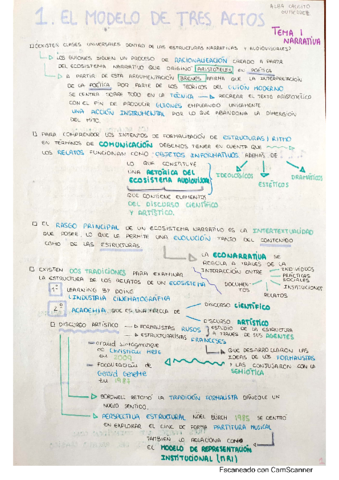 ALBA CRIADO
1. EL MODELO DE TRES ACTOS
TEMA 1
NARRATIVA
¿EXISTEN CLASES UNIVERSALES DENTRO DE LAS ESTRUCTURAS NARRATIVAS Y AUDIOVISUALES?
LOS GUIONES SIGUEN UN PROCESO DE RACIONALIZACIÓN CREADO A PARTIR
DEL ECOSISTEMA NARRATIVO QUE ORIGINÓ ARISTÓTELES EN POÉTICA
A PARTIR DE ESTA ARGUMENTACIÓN BROWNE AFIRMA QUE LA INTERPRETACIÓN
DE LA POÉTICA POR PARTE DE LOS TEÓRICOS DEL GUION MODERNO
SE CENTRÓ SOBRE TODO EN LA TÉCNICA → RECREAR EL TEXTO ARISTOTÉLICO
CON EL FIN DE PRODUCIR GUIONES EMPLEANDO ÚNICAMENTE
UNA ACCIÓN INSTRUMENTAL POR LO QUE ABANDONA LA DIMENSIÓN
DEL MITO.
PARA COMPRENDER LOS INTENTOS DE FORMALIZACIÓN DE ESTRUCTURAS Y RITMO
EN TÉRMINOS DE COMUNICACIÓN DEBEMOS TENER EN CUENTA QUE
LOS RELATOS FUNCIONAN COMO OBJETOS INFORMATIVOS ADEMÁS DE:
LO QUE CONSTITUYE
UNA RETÓRICA DEL
ECOSISTEMA AUDIOVISUAL
IDEOLÓGICOS
ESTÉTICOS
DRAMÁTICOS
QUE CONTIENE ELEMENTOS
DEL DISCURSO CIENTÍFICO
Y ARTÍSTICO.
EL RASGO PRINCIPAL DE UN ECOSISTEMA NARRATIVO ES LA INTERTEXTUALIDAD
QUE POSEE, LO QUE LE PERMITE UNA EVOLUCIÓN TANTO DEL CONTENIDO
COMO DE LAS ESTRUCTURAS.
LA ECONARRATIVA SE
REGULA A TRAVÉS DE LA
INTERACCIÓN ENTRE
INDIVIDUOS
PRÁCTICAS SOCIALES
INSTITUCIONES
RELATOS
EXISTEN DOS TRADICIONES PARA EXAMINAR
LA ESTRUCTURA DE LOS RELATOS DE UN ECOSISTEMA
1ª LEARNING BY DOING
INDUSTRIA CINEMATOGRÁFICA
2ª ACADEMIA QUE ES UNA MEZCLA DE
DISCURSO CIENTÍFICO
DISCURSO ARTÍSTICO
DISCURSO ARTÍSTICO → FORMALISTAS RUSOS
ESTRUCTURALISTAS FRANCESES
ESTUDIO DE LA ESTRUCTURA
A TRAVÉS DE SUS AGENTES
CHRISTIAN METZ
QUE DESARROLLARON LAS
IDEAS DE LOS FORMALISTAS
Y LAS CONJUGARON CON LA
SEMIÓTICA
FOCALIZACIÓN DE
Gerard Genette
BORDWELL RETOMÓ LA TRADICIÓN FORMALISTA DÁNDOLE UN
NUEVO SENTIDO.
PERSPECTIVA ESTRUCTURAL NOEL BURCH 1985 SE CENTRÓ
EN EXPLORAR EL CINE DE FORMA PARTITURA MUSICAL
TAMBIÉN LO RELACIONA CON
EL MODELO DE REPRESENTACIÓN
INSTITUCIONAL (MRI)
Escaneado con CamScanner